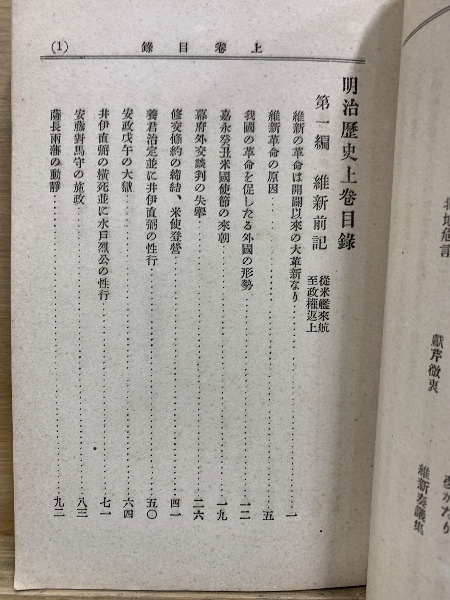 上卷目錄
(1)
明治歷史上卷目錄
第一編 維新前記
從米艦來航
至政權返上
維新の革命は開闢以來の大革新なり 一
維新革命の原因 五
我國の革命を促したる外國の形勢 一二
嘉永癸丑米國使節の來朝 一九
幕府外交談判の失擧 二六
修交條約の締結、米使登營 四一
養君治定並に井伊直弼の性行 五〇
安政戊午の大獄 六四
井伊直弼の橫死並に水戶烈公の性行 七一
安藤對馬守の施政 八三
薩長兩藩の動靜 九二
獻芹微衷
維新奏議集